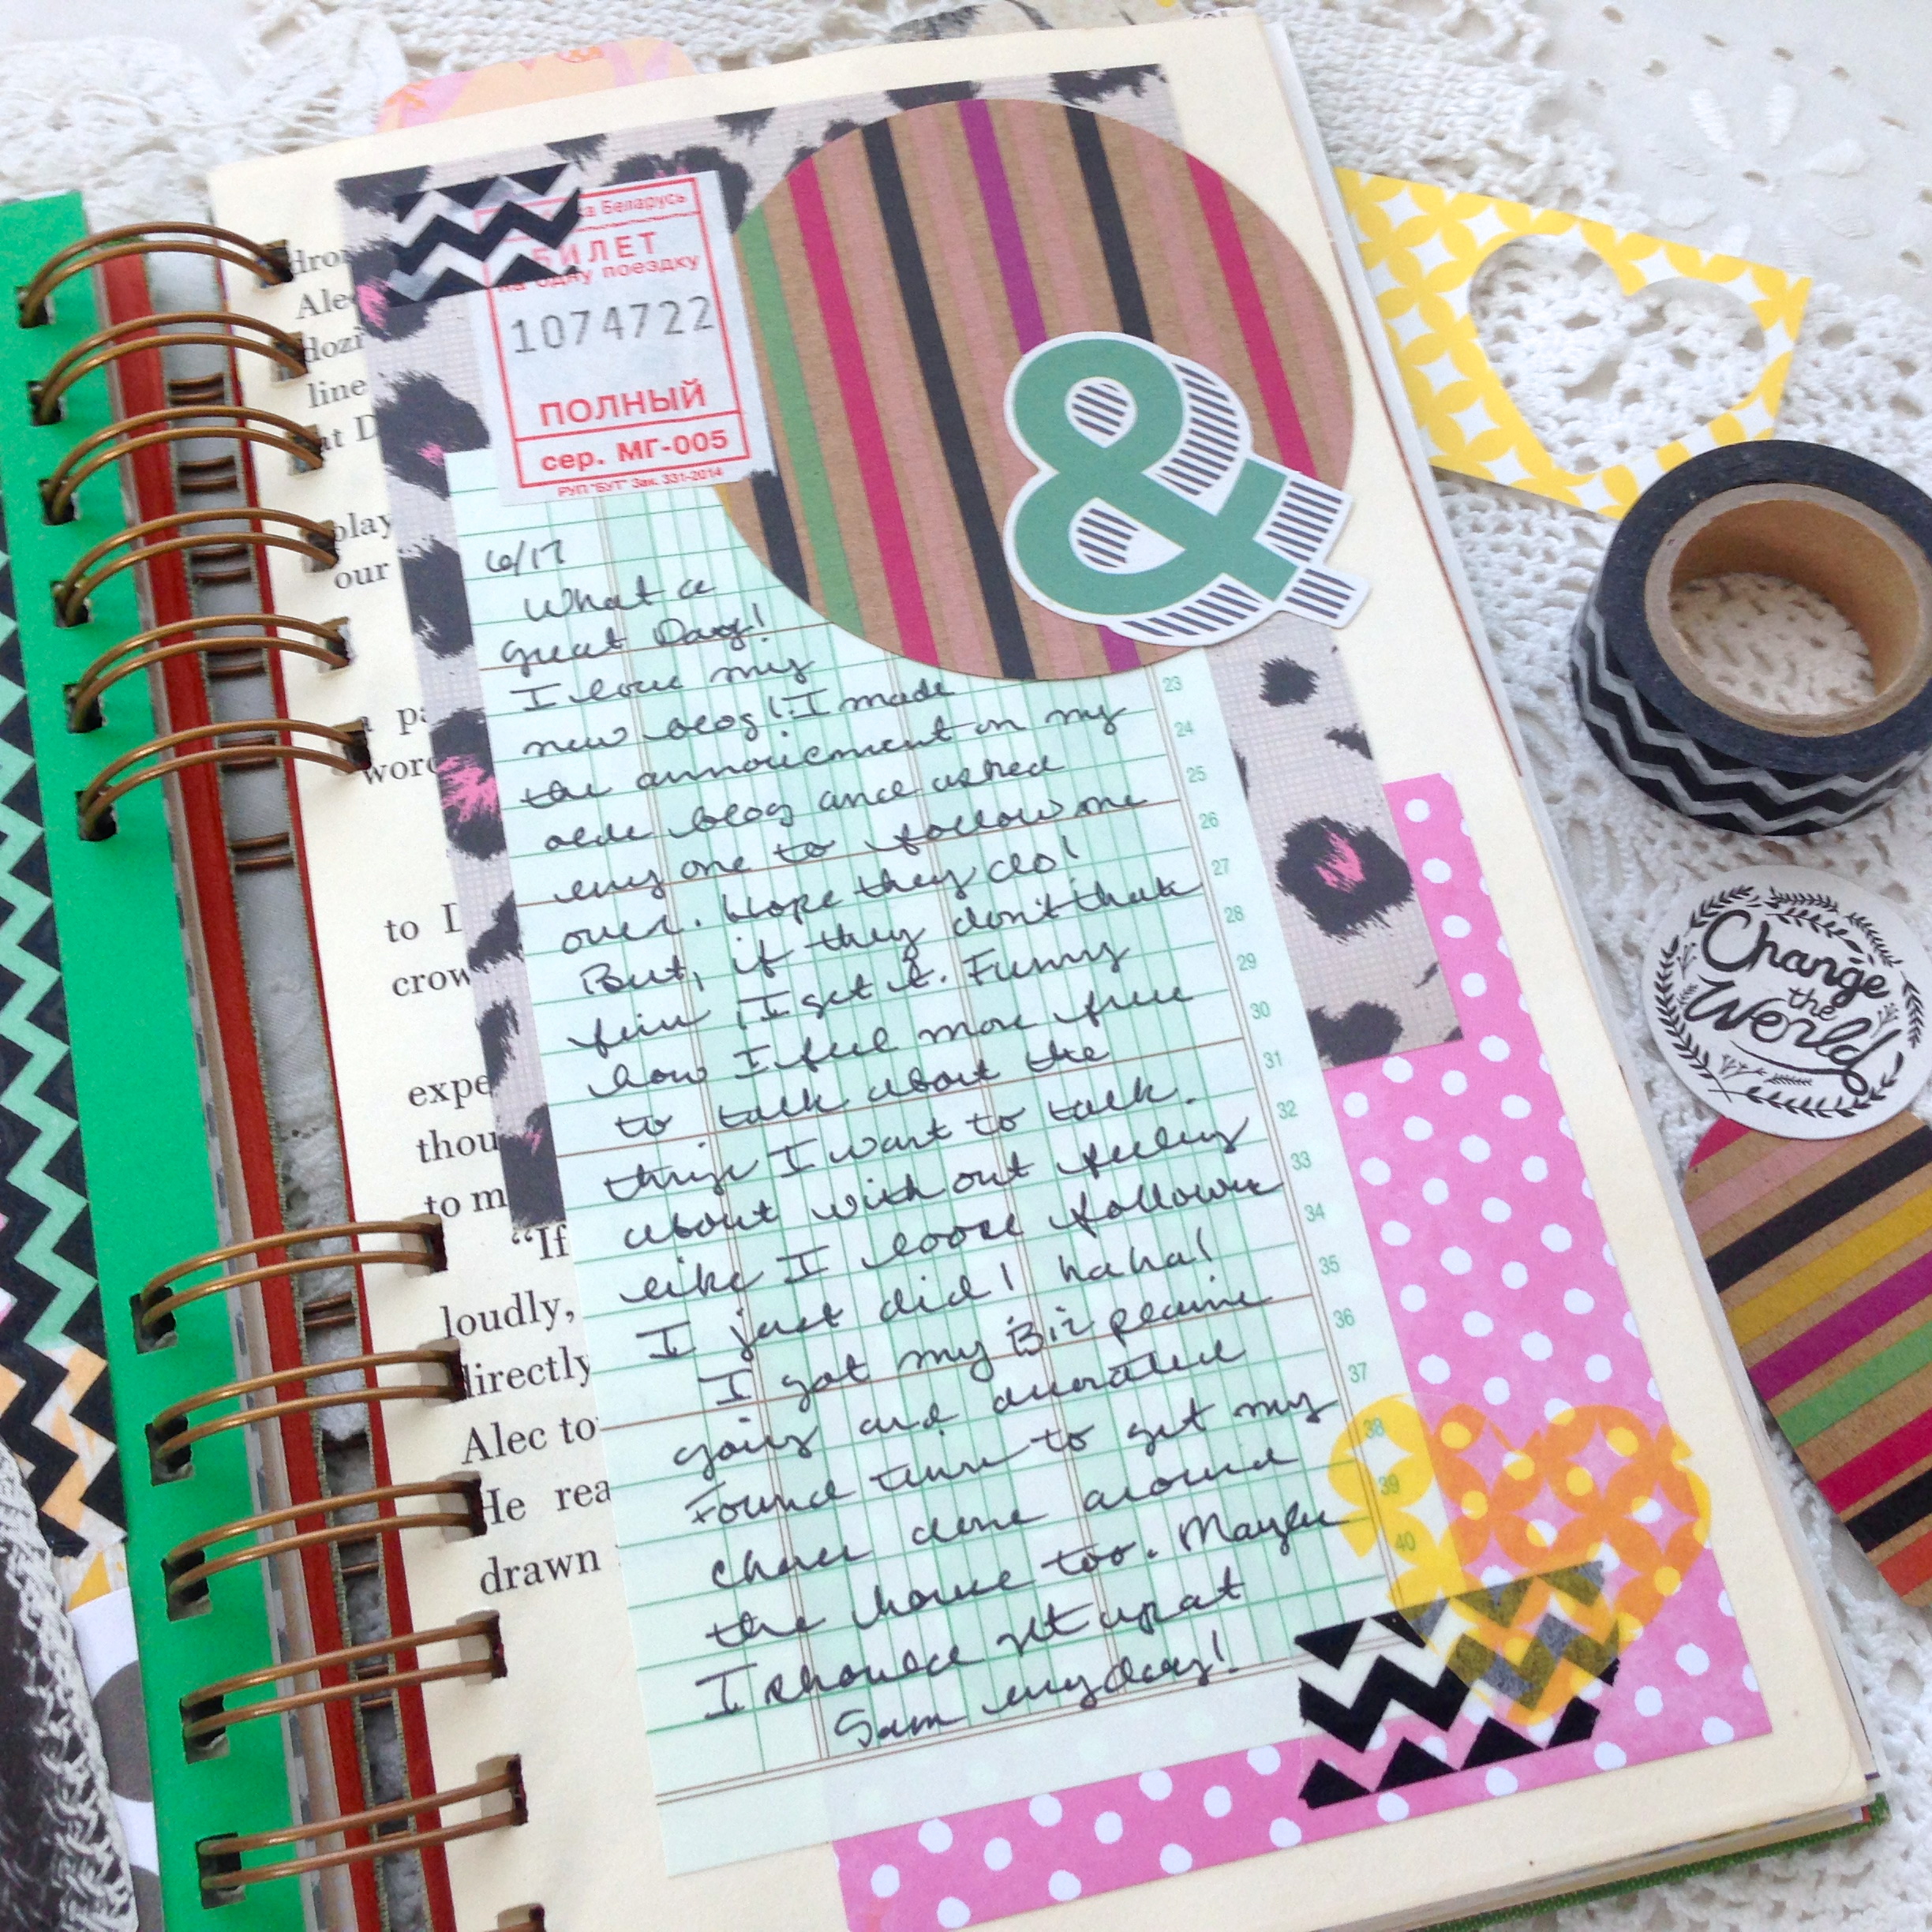 ка Беларусь
БИЛЕТ
на одну поездку
1074722
ПОЛНЫЙ
сер. МГ-005
РУП "БУТ" Зак. 331-2014
&
6/17
What a
great Day!
I love my
new blog! I made
the annoucment on my
olde blog and asked
every one to follow me
over. Hope they do!
But, if they don't thats
fine, I get it. Funny
how I feel more free
to talk about the
things I want to talk.
about with out feeling
like I loose follower
I just did! haha!
I got my Biz plaine
going and
Found time to get my
chores done around
the house too. Maybe
I should get up at
5am everyday!
23
24
25
26
27
28
29
30
31
32
33
34
35
36
37
38
39
40
dro
Ale
dozi
line
at D
play
our
a pa
word
to D
crow
expe
thou
to m
"If
loudly,
directly
Alec to
He rea
drawn
Change
the
World